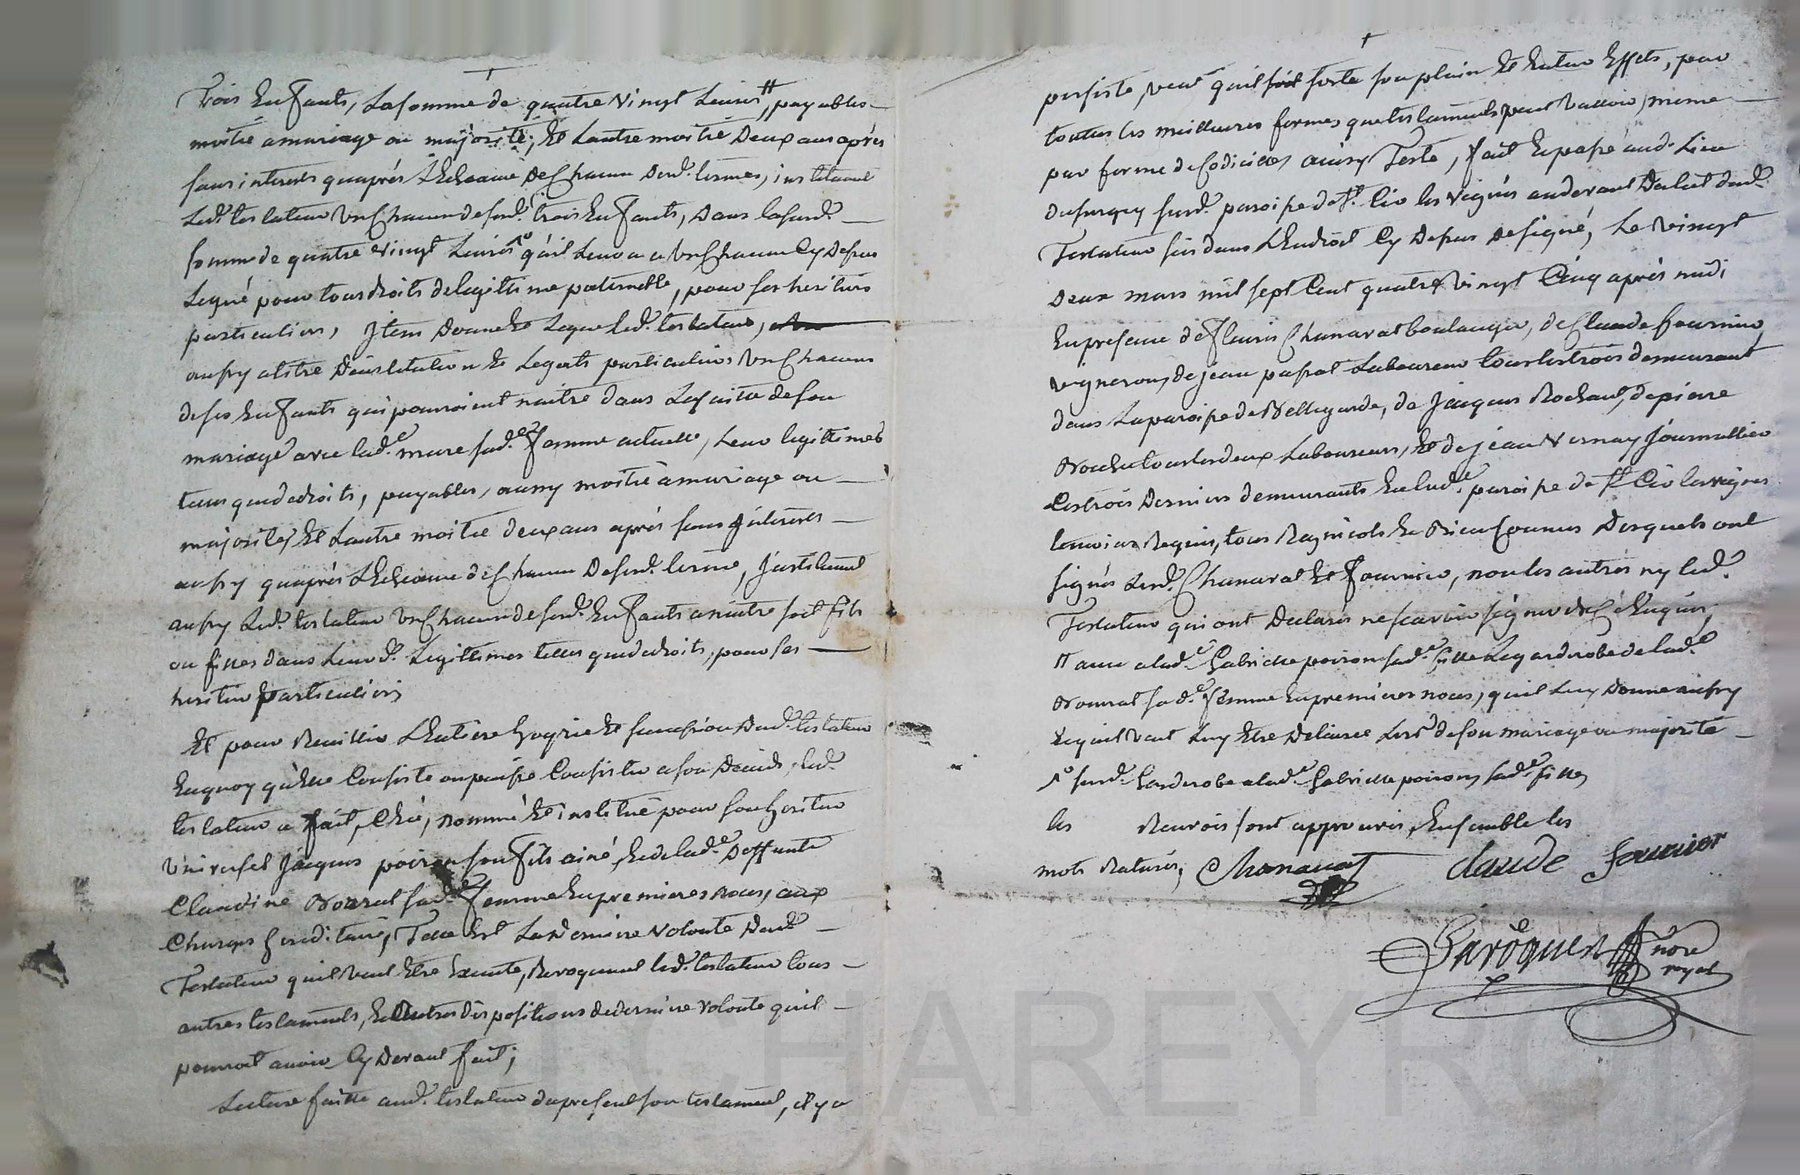 trois Enfants, La somme de quatre vingt Livres, payables
moitié a mariage ou majorité, Et Lautre moitié Deux ans après
sans interets quaprés L'Echeance de Chacun Desd. termes, instituant
Led. testateur Un Chacun de sesd. trois Enfants, Dans lasusd.
somme de quatre vingt Livres qu'il Leur a a Un Chacun Cy Dessus
Legué pour tous droits de legittime paternelle, pour ses heritiers
particuliers, Item Donne Et Legue Led. testateur,
aussy atitre D'institution Et Legats particuliers Un Chacun
de ses Enfants qui pourroient naitre dans La suitte de son
mariage avec lad.e mure sad.e femme actuelle, Leur legittimes
telles que de droits, payables, aussy moitié a mariage ou
majorité, Et Lautre moitié deux ans après sans Interets
aussy quaprés L'Echeance de Chacun Desesd. terme, Instituant
aussy Led. testateur Un Chacun de sesd. Enfants a naitre soit fils
ou filles dans Leursd. Legittimes telles que de droits, pour ses
heritiers particuliers
Et pour Recuillir L'Entiere hoyrie Et succession Dud. testateur
En quoy qu'Elle Consiste ou puisse Consister a son Decéds, Led.
testateur a fait, Créé, nommé Et institué pour son heritier
Universel Jacques poizon son fils ainé, Et de lad.e Deffunte
Claudine Bourrat sad.e femme En premieres noces, aux
Charges hereditaires, Telle Est La Derniere volonté Dud.
Testateur qu'il veut Etre Executé, Revoquant led. testateur tous
autres testaments, Et Autres dispositions de derniere volonté quil
pourroit avoir Cy Devant fait;
Lecture faitte aud. testateur du present son testament, il y a
persisté, veut quil sorte son plein Et Entier Effets, par
toutes les meilleures formes que testaments peut valloir, meme
par forme de Codicilles, ainsy Testé, fait Et passé aud. Lieu
susd. paroisse de St. Cir les vignes audevant Du lit dud.
Testateur sis dans L'Endroit Cy Dessus designé, Le vingt
Deux mars mil sept Cent quatre vingt Cinq après midi
En presence de fleuris Chanavat boulanger, de Claude fournier
vigneron, de jean passot Laboureur tous les trois demeurant
dans La paroisse de Bellegarde, de Jacques Rochand, de pierre
tous les deux Laboureurs, Et de jean vernay Journallier
Les trois Derniers demeurants En lad.e paroisse de St. Cir les vignes
temoins Requis, tous Regnicols Et Bien Connus Desquels ont
signés Lesd. Chanavat Et fournier, non les autres ny led.
Testateur qui ont Declarés ne scavoir signer de Ce Enquis,
a lad.e Gabrielle poizon sad.e fille La garderobe de lad.e
Bourrat sad.e femme En premieres noces, quil Luy Donne aussy
Et quil veut Luy Etre Delivrée Lors de son mariage ou majorité
susd. Garderobe a lad.e Gabrielle poizon, sad.e fille,
les Renvois sont approuvés, Ensemble les
mots Raturés, Chanavat Claude fournier
nore
royal
CHAREYRON